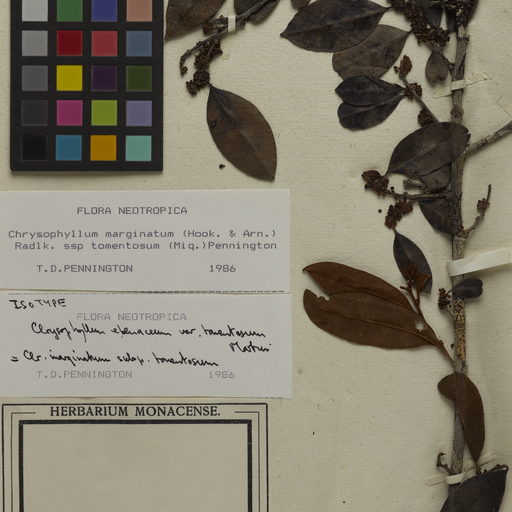 FLORA NEOTROPICA
Chrysophyllum marginatum (Hook. & Arn.)
Radlk. ssp tomentosum (Miq.)Pennington
T.D.PENNINGTON 1986
ISOTYPE
FLORA NEOTROPICA
Chrysophyllum ebenaceum var. tomentosum
= Chr. marginatum subsp. tomentosum
T.D.PENNINGTON 1986
HERBARIUM MONACENSE.